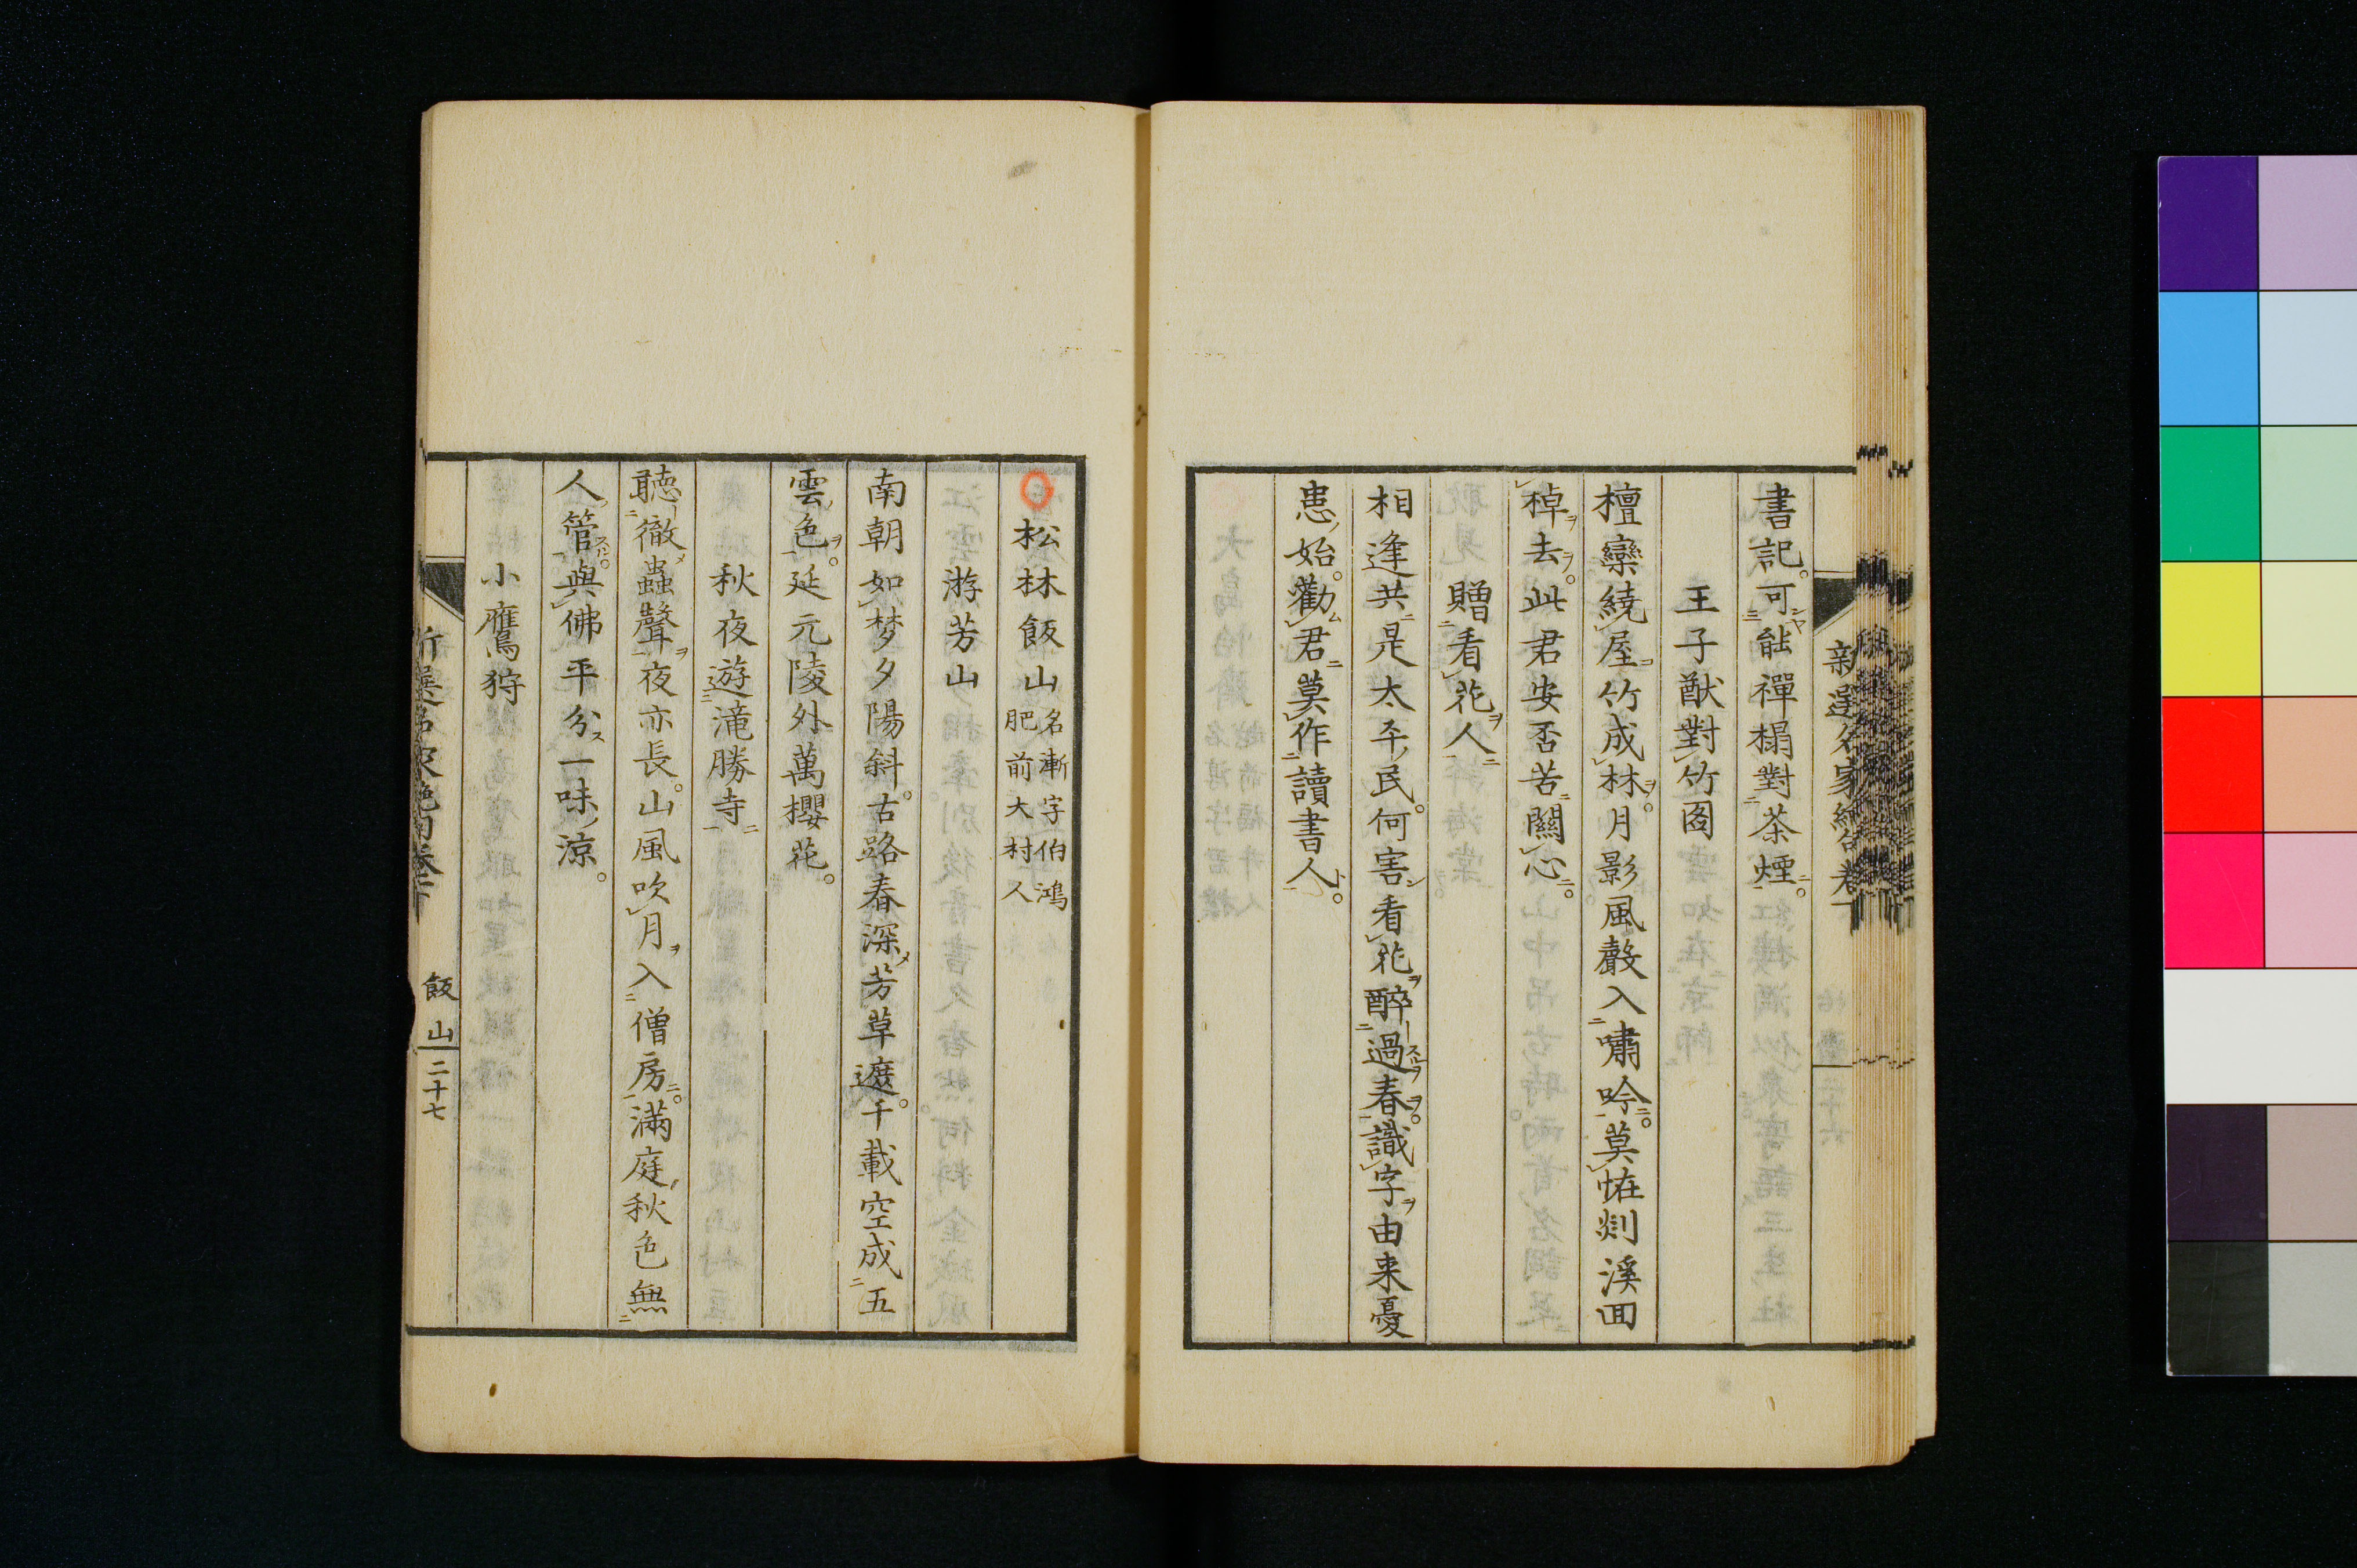 書記可能禪榻對茶煙
王子猷對竹図
檀欒繞屋竹成林月影風聲入嘯吟莫恠剡溪回
棹去此君安否苦關心
贈看花人
相逢共是太平民何害看花醉過春識字由来憂
患始勸君莫作讀書人
松林飯山 名漸字伯鴻
肥前大村人
游芳山
南朝如梦夕陽斜古路春深芳草遮千載空成五
雲色延元陵外萬櫻花
秋夜遊滝勝寺
聽徹蟲聲夜亦長山風吹月入僧房滿庭秋色無
人管與佛平分一味涼
小鷹狩
飯山 二十七